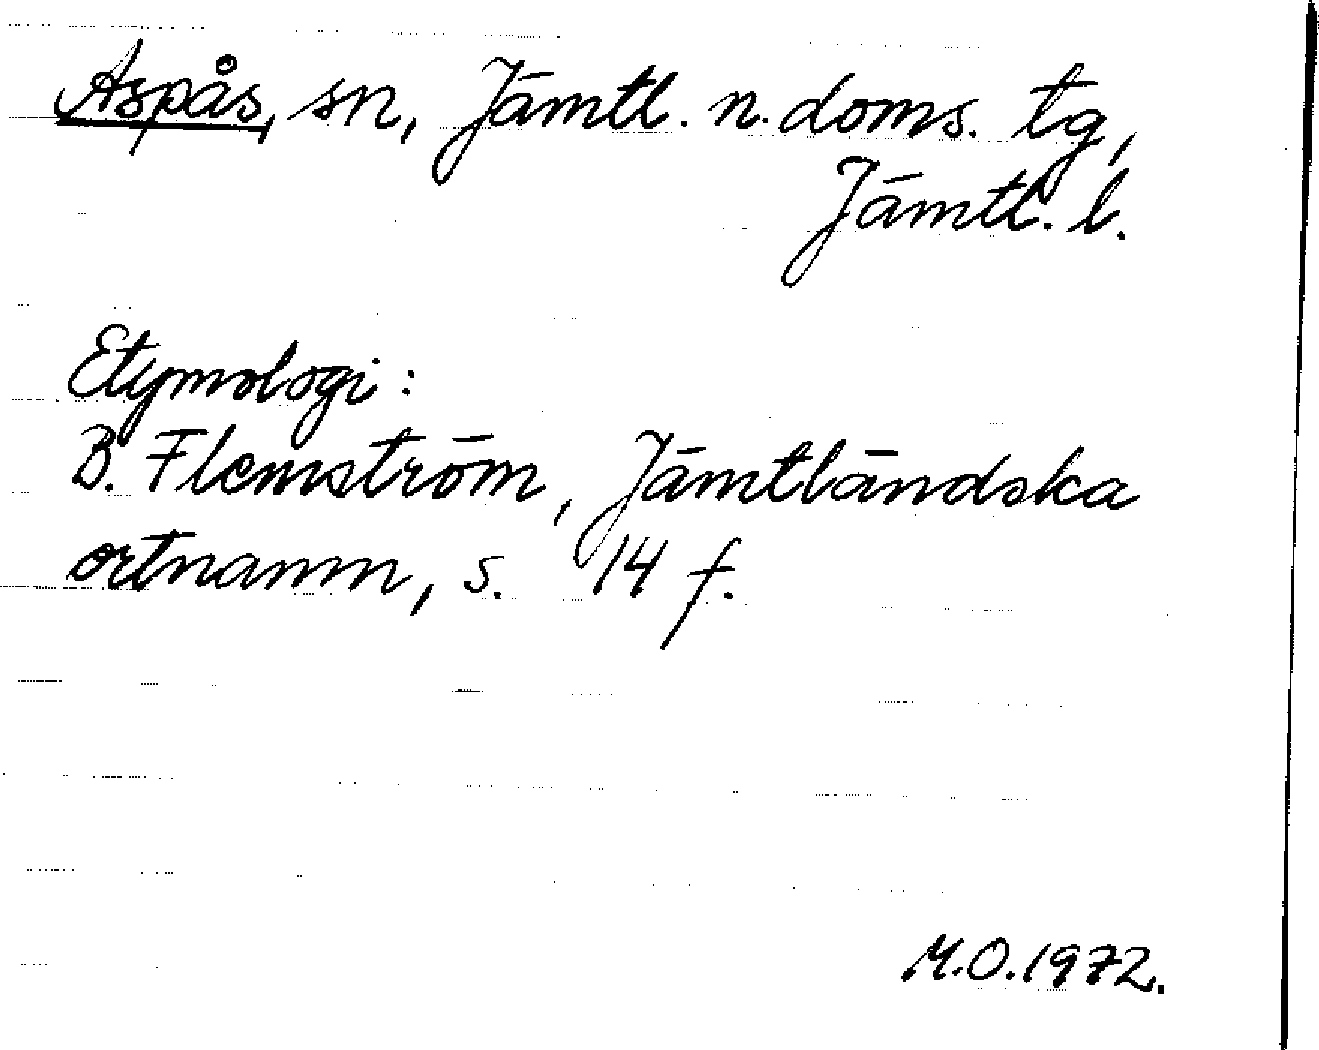 Aspås, sn, Jämtl. n. doms. tg,
Jämtl. l.
Etymologi:
B. Flemström, Jämtländska
ortnamn, s. 14 f.
M.O. 1972.